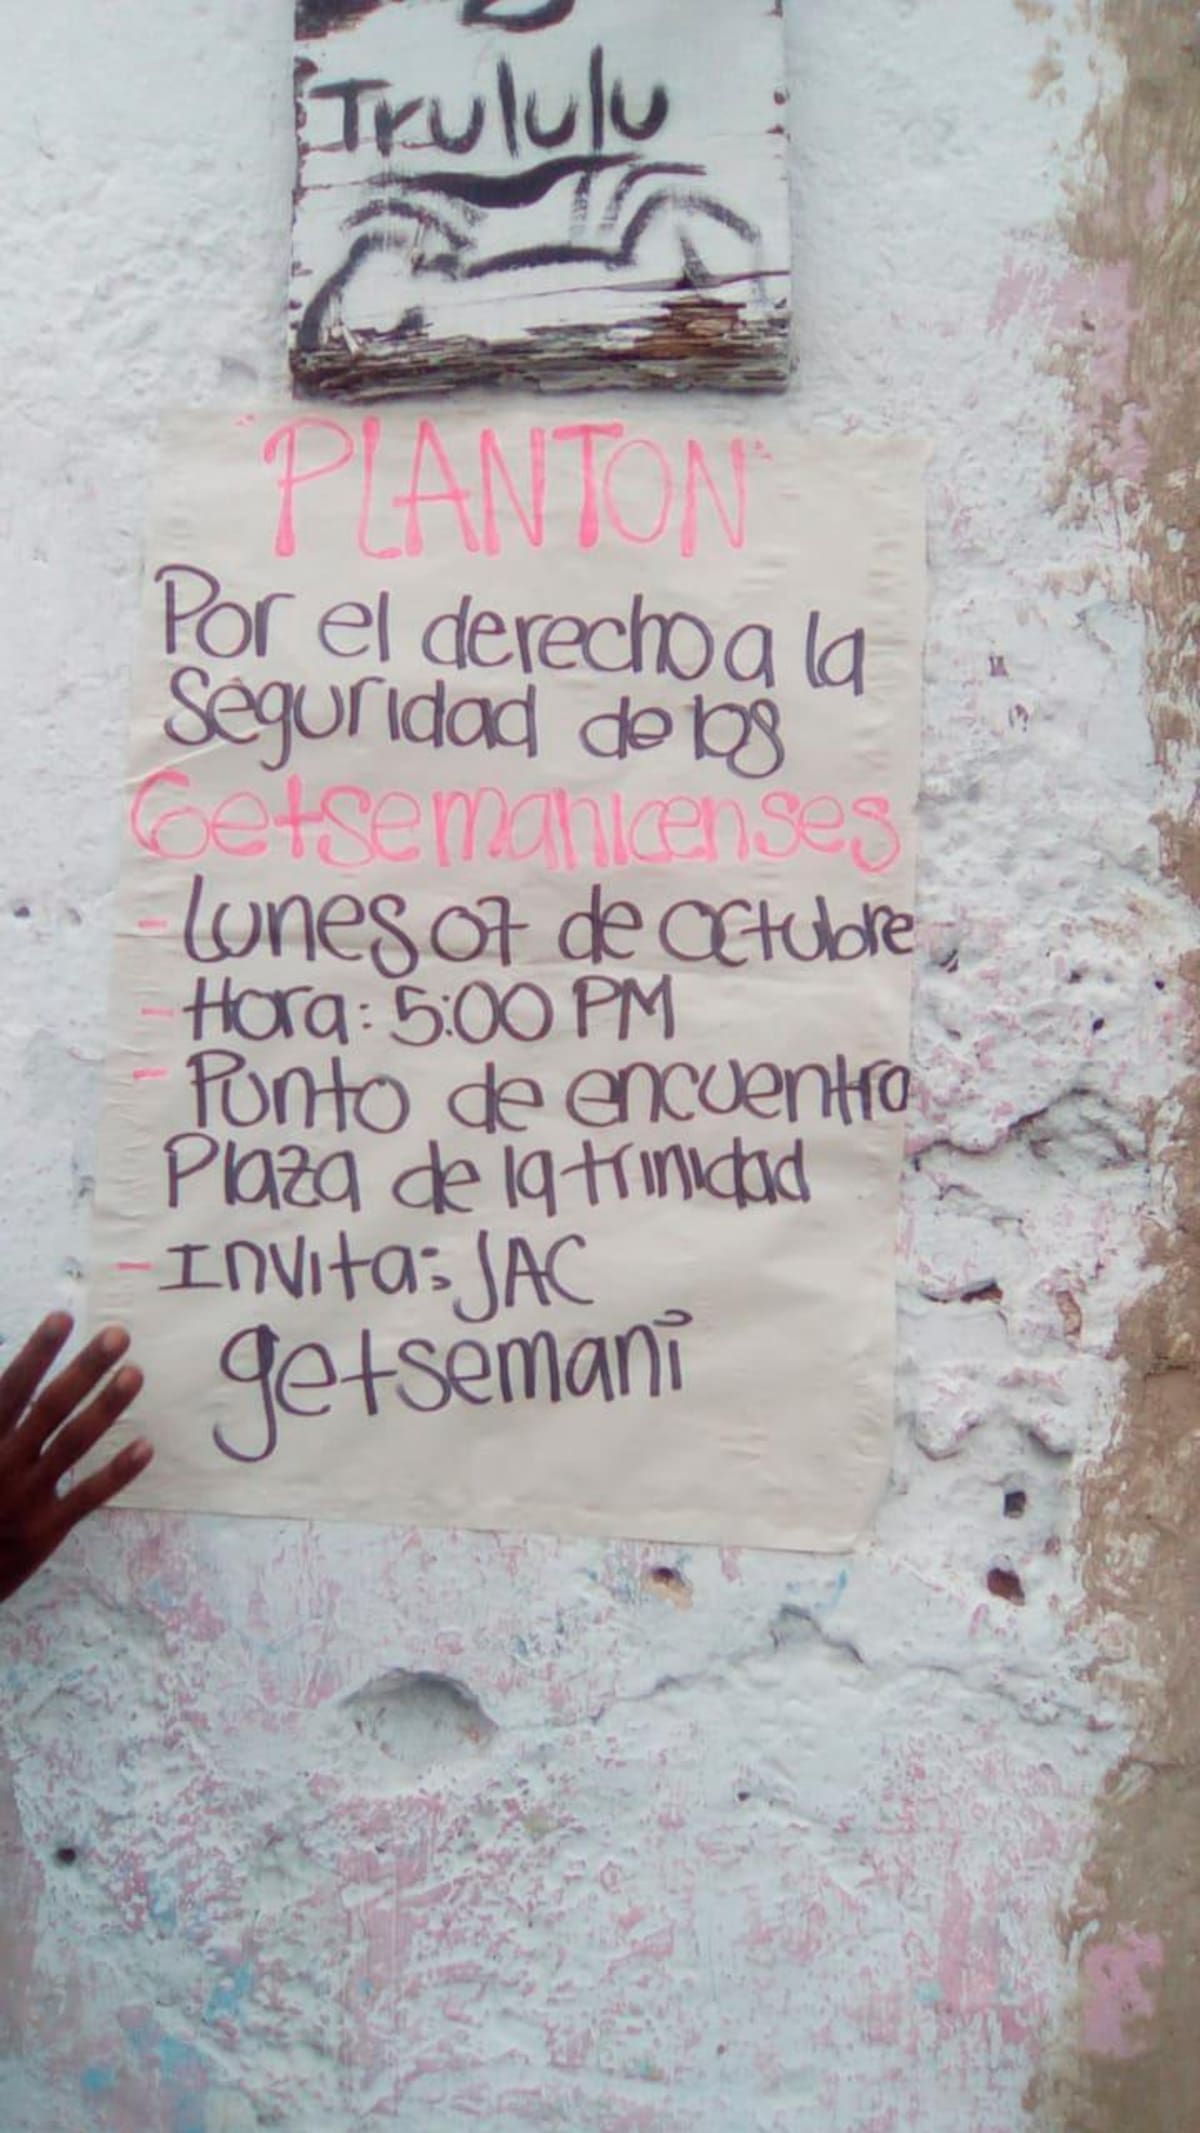 Trululu
"PLANTON"
Por el derecho a la
Seguridad de los
Getsemanicenses
- Lunes 07 de octubre
- Hora: 5:00 PM
- Punto de encuentro
Plaza de la trinidad
- Invita: JAC
getsemani